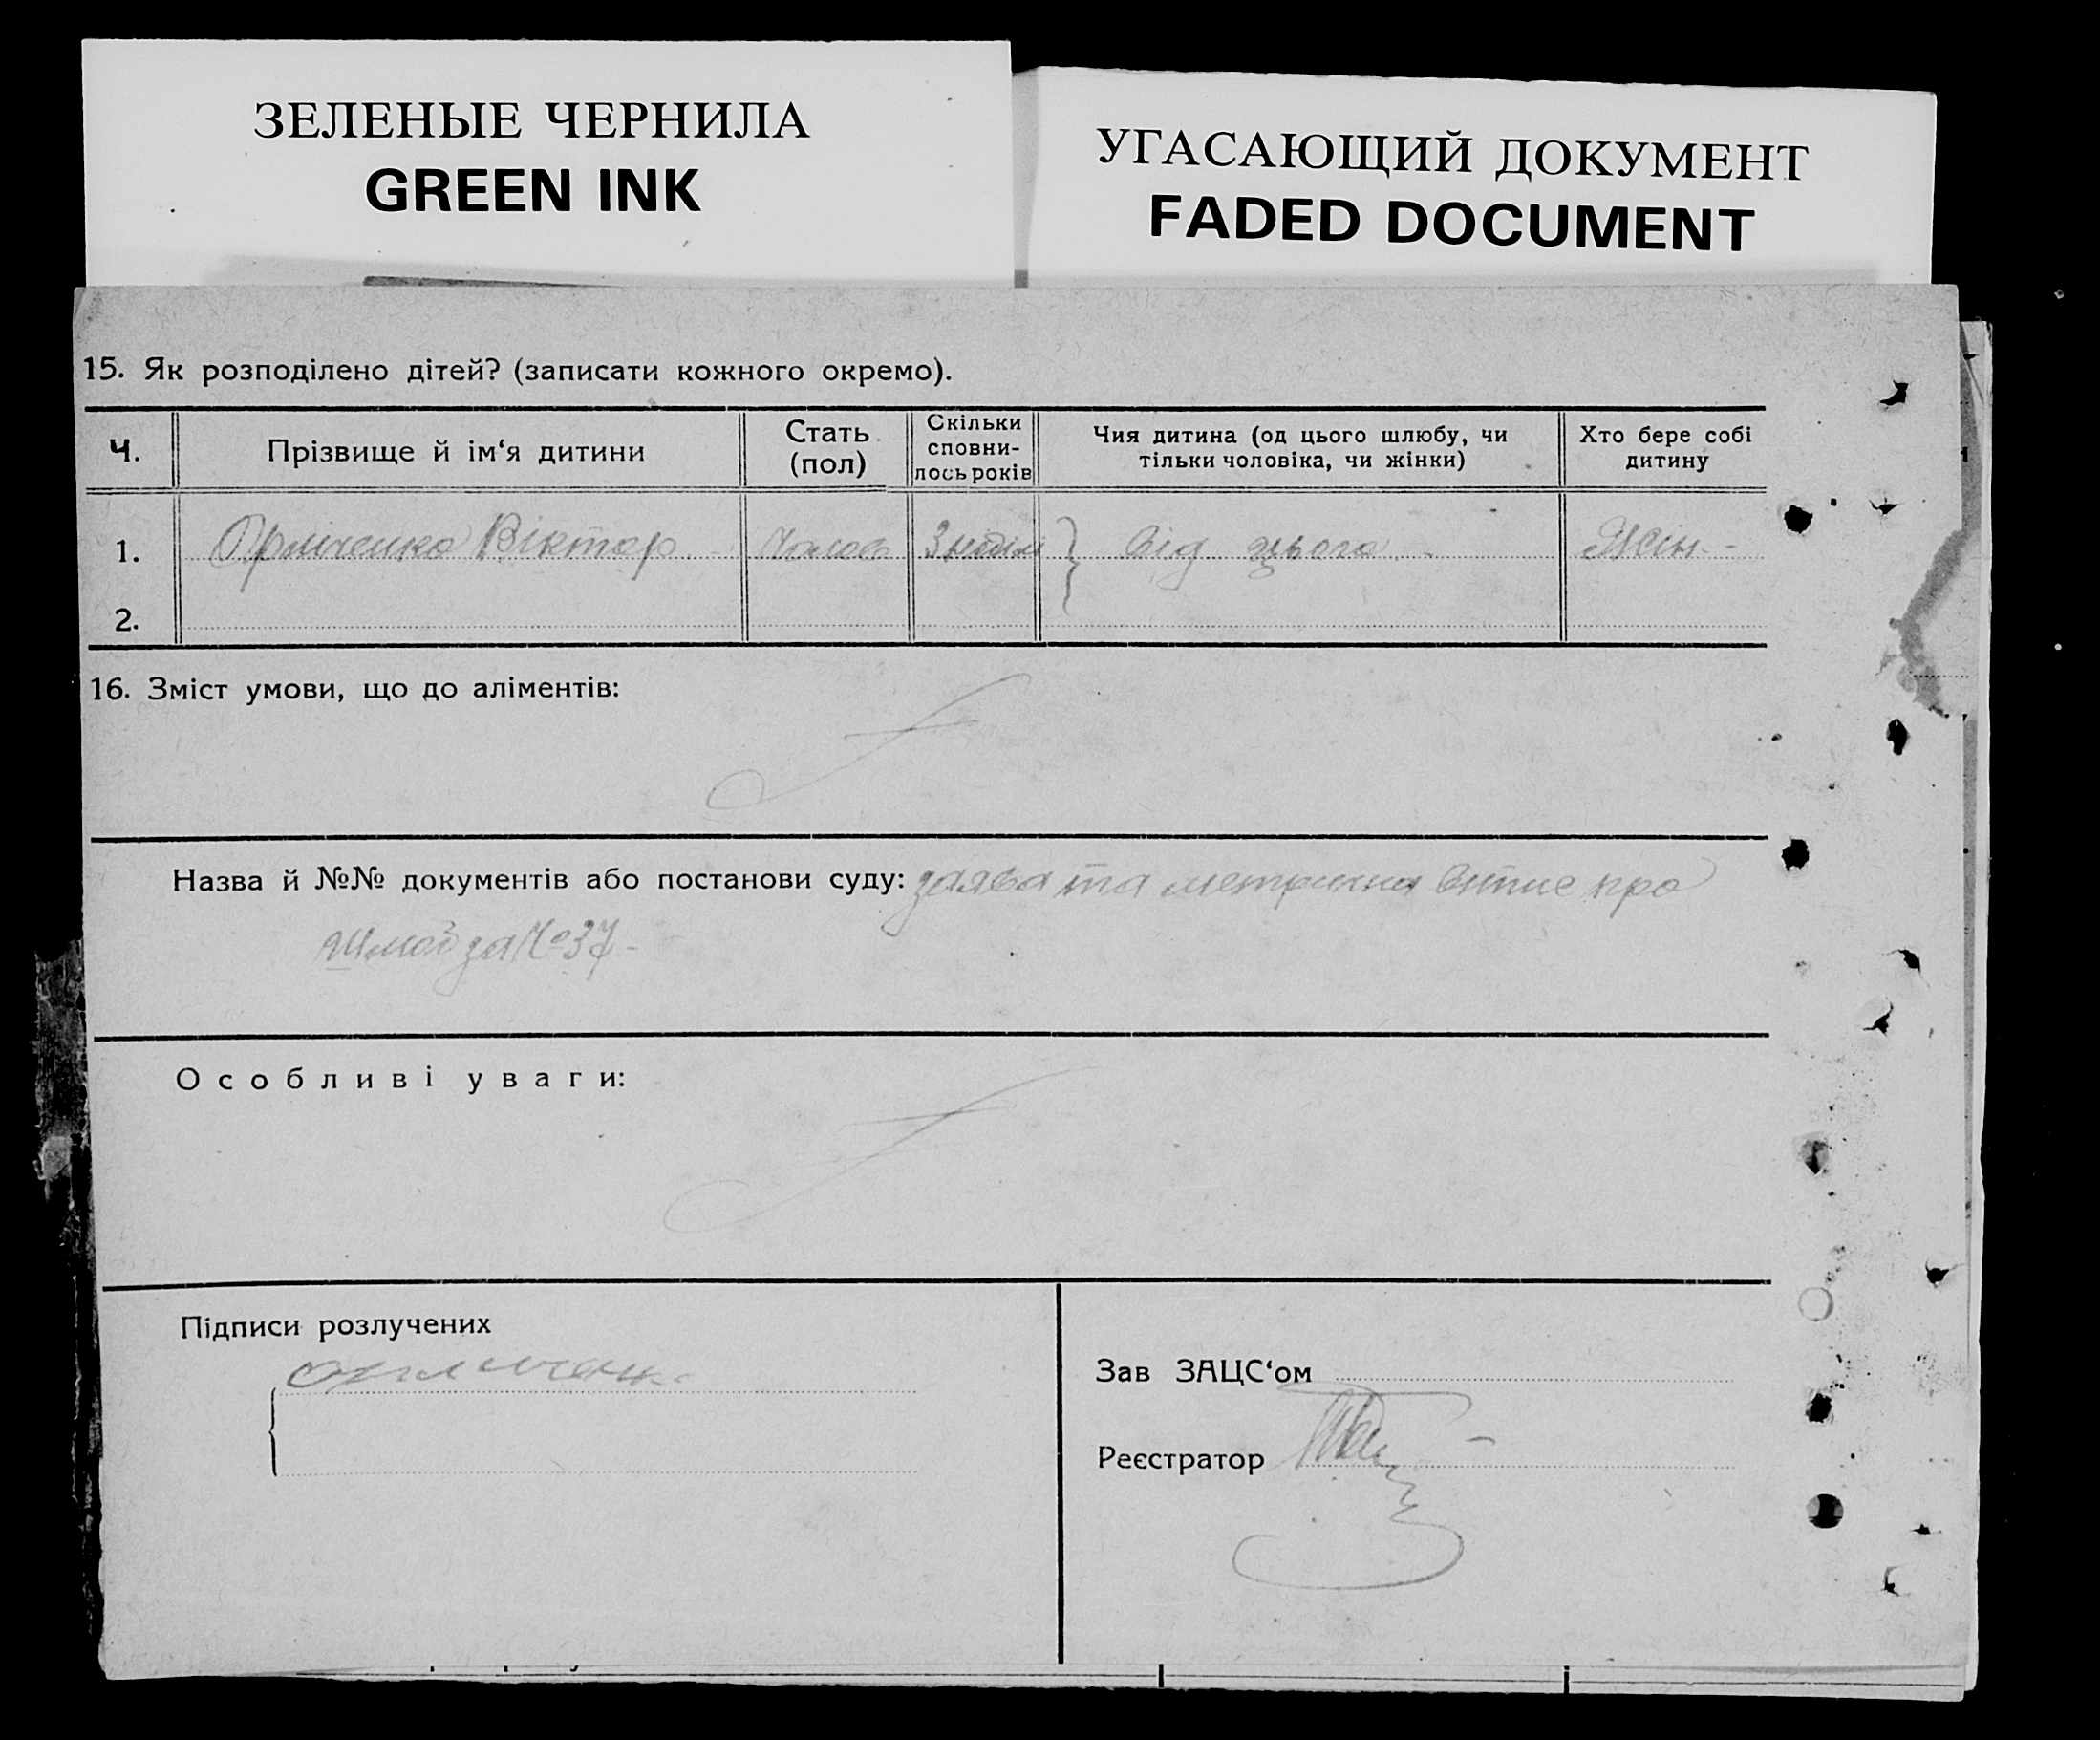 ЗЕЛЕНЫЕ ЧЕРНИЛА
GREEN INK
УГАСАЮЩИЙ ДОКУМЕНТ
FADED DOCUMENT
15. Як розподілено дітей? (записати кожного окремо).
Ч. Прізвище й ім‘я дитини Стать (пол) Скільки сповни-лось років Чия дитина (од цього шлюбу, чи тільки чоловіка, чи жінки) Хто бере собі дитину
1. Віктор Чолов 3 від цього Жін.
2.
16. Зміст умови, що до аліментів:
Назва й №№ документів або постанови суду: заява та метрична витис про
за №37
Особливі уваги:
Підписи розлучених
Зав ЗАЦС‘ом
Реєстратор